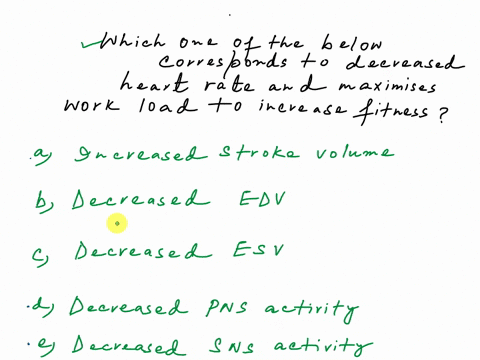 ✓Which one of the below
corresponds to decreased
heart rate and maximises
work load to increase fitness?
a) Increased stroke volume
b) Decreased EDV
c) Decreased ESV
d) Decreased PNS activity
e) Decreased SNS activity